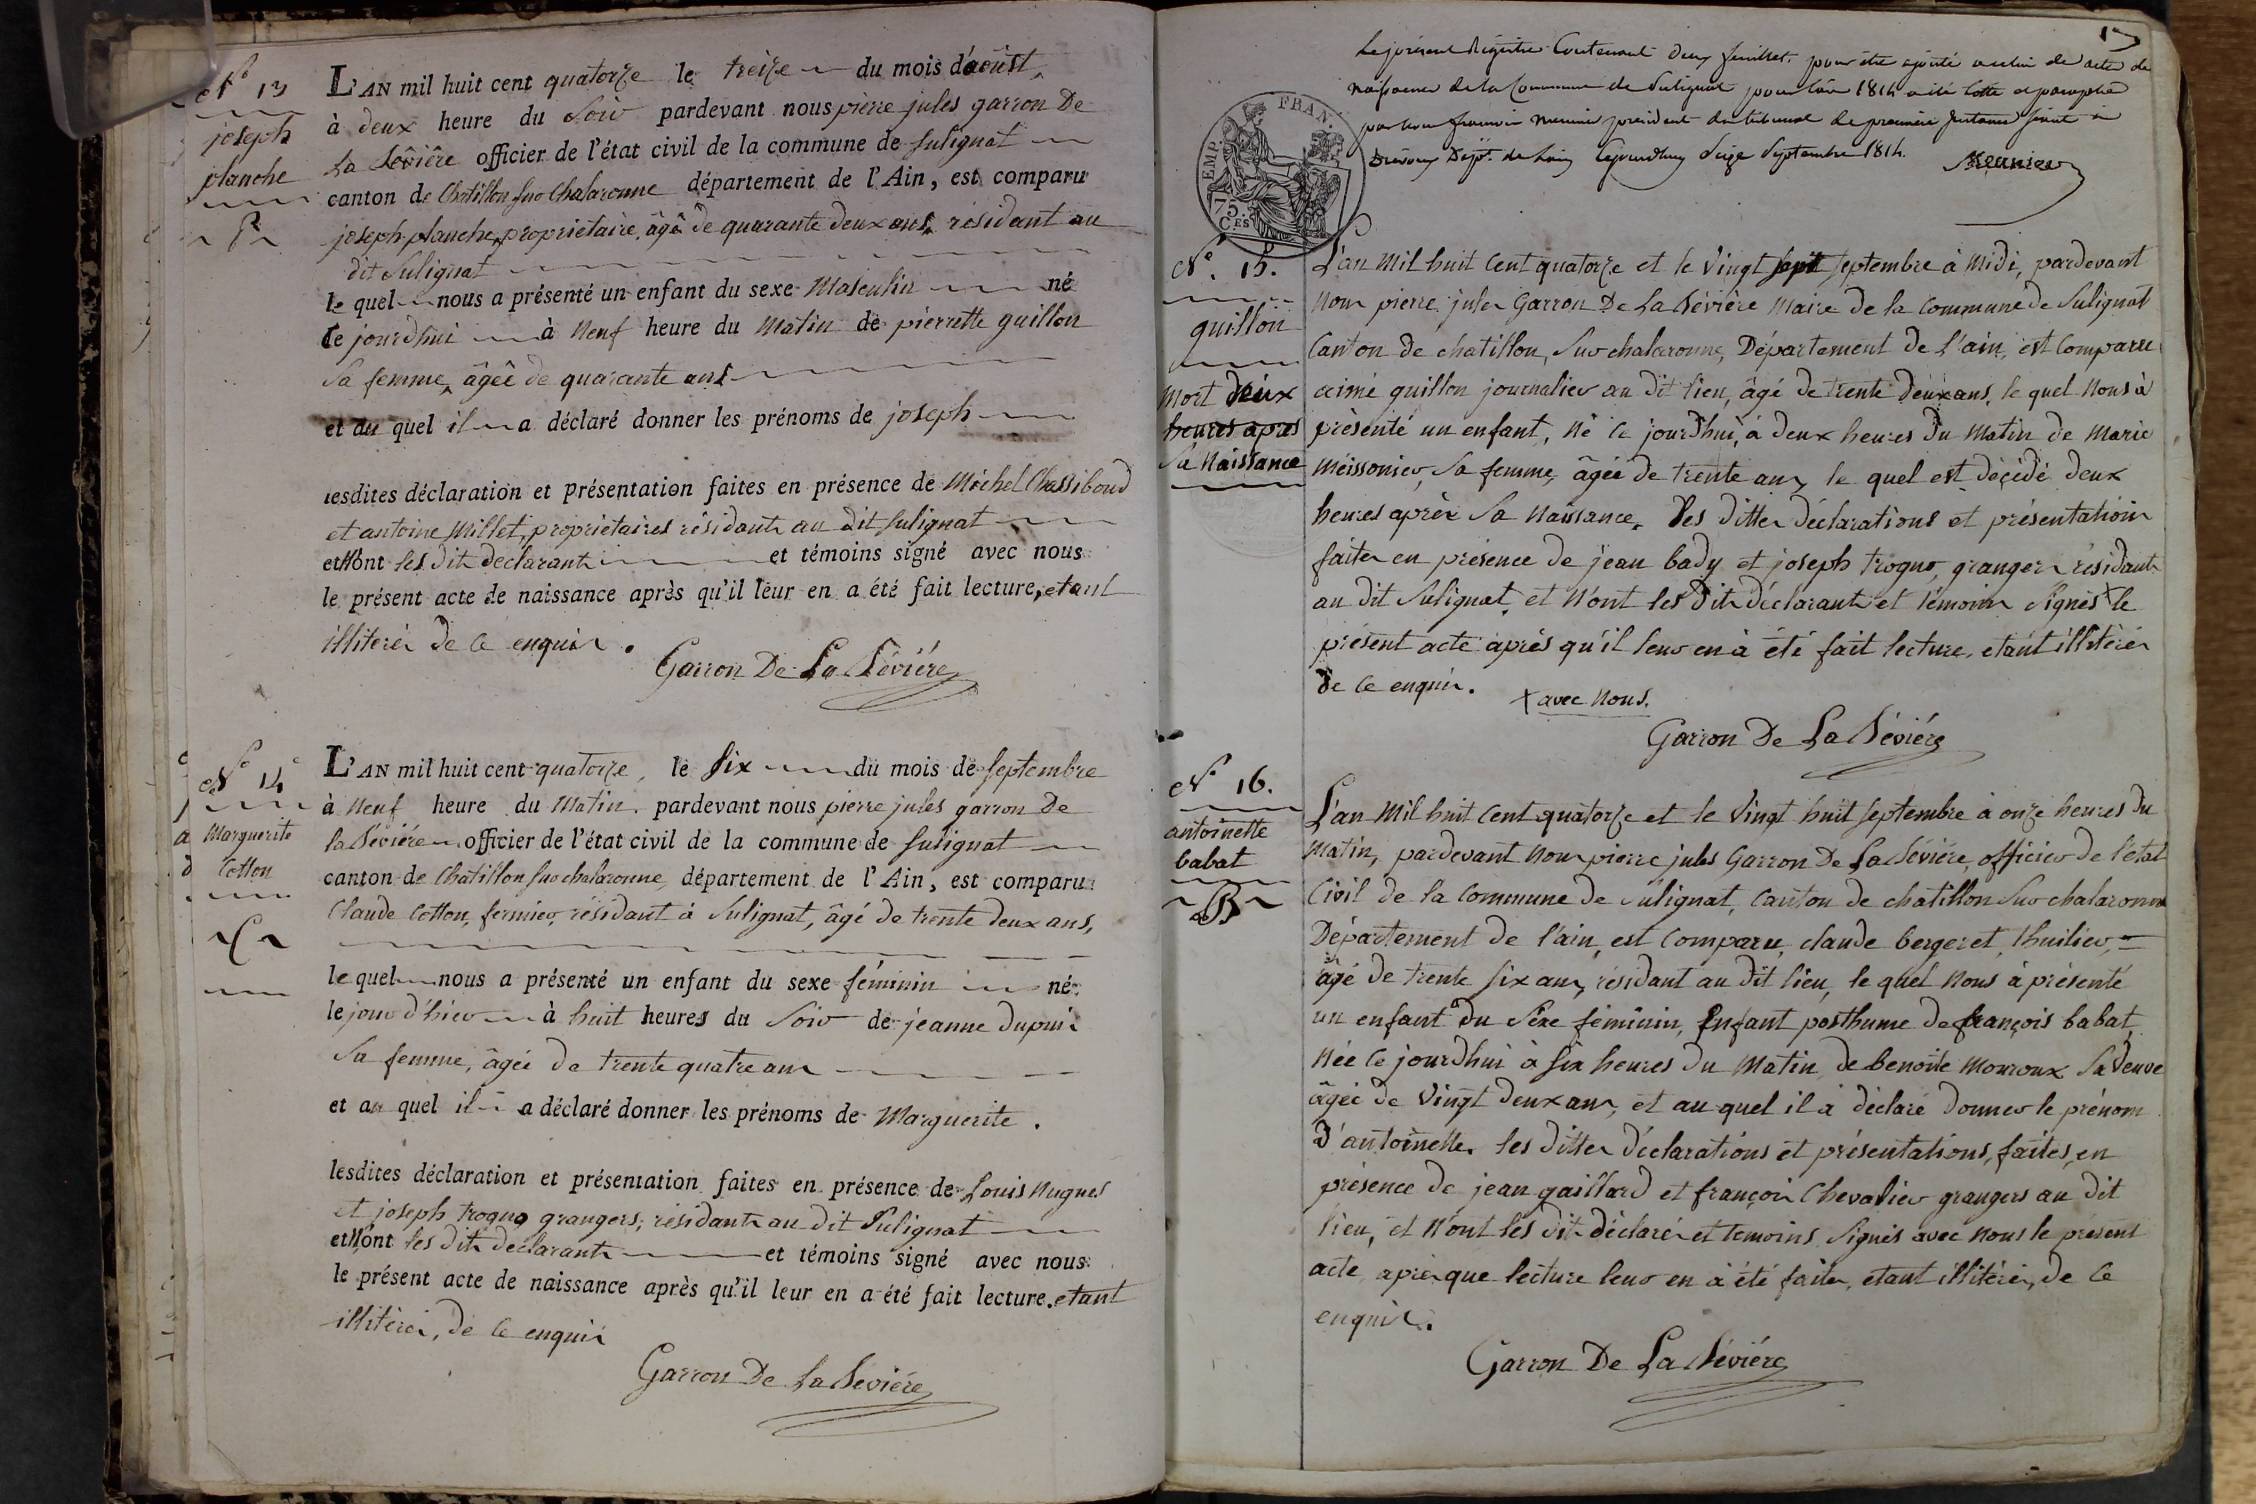 N° 13
joseph
planche
L'AN mil huit cent quatorze le treize du mois d'août,
à deux heure du Soir pardevant nous pierre jules garron De
La Sévière officier de l'état civil de la commune de Sulignat
canton de Chatillon sur Chalaronne département de l'Ain, est comparu
joseph planche, propriétaire, âgé de quarante deux ans, résidant au
dit Sulignat
le quel nous a présenté un enfant du sexe Masculin né
Ce jourd'hui à Neuf heure du Matin de pierrette guillon
Sa femme, âgée de quarante ans
et au quel il a déclaré donner les prénoms de joseph
lesdites déclaration et présentation faites en présence de Michel Chassiboud
et antoine Millet, propriétaires résidants au dit Sulignat
et N'ont les dits déclarants et témoins signé avec nous
le présent acte de naissance après qu'il leur en a été fait lecture, etant
illiterés de ce enquis.
Garron De La Sévière
N° 14
Marguerite
Cotton
C
L'AN mil huit cent quatorze, le Six du mois de Septembre
à Neuf heure du Matin. pardevant nous pierre jules garron De
la Sévière officier de l'état civil de la commune de Sulignat
canton de Chatillon sur chalaronne, département de l'Ain, est comparu
Claude Cotton, fermier, résidant à Sulignat, âgé de trente deux ans,
le quel nous a présenté un enfant du sexe féminin né
le jour d'hier à huit heures du Soir de jeanne Dupuis
Sa femme, âgée de trente quatre ans
et au quel il a déclaré donner les prénoms de Marguerite.
lesdites déclaration et présentation faites en présence de Louis Nugues
et joseph trogno grangers, résidants au dit Sulignat
et N'ont les dits déclarants et témoins signé avec nous
le présent acte de naissance après qu'il leur en a été fait lecture. etant
illitérés, de ce enquis
Garron De La Sévière
17
Le présent Registre Contenant deux feuillets pour être ajouté à celui de actes de
Naissance de la Commune de Sulignat pour l'an 1814 a été Cotté et paraphé
par nous françois Meunier president du tribunal de première Instance séant à
Trévoux Dépt. de l'ain Cejourdhuy Seize Septembre 1814.
Meunier
EMP. FRAN.
75
CES
N°. 15.
guillon
Mort deux
heures après
Sa Naissance
L'an Mil huit Cent quatorze et le Vingt Sept Septembre à Midi, pardevant
Nous pierre jules Garron De La Sévière Maire de la Commune de Sulignat
Canton de chatillon, Sur chalaronne, Département de l'ain, est Comparu
aimé guillon journalier au dit lieu, âgé de trente deux ans, le quel Nous à
présenté un enfant, Né Ce jourd'hui, à deux heures du Matin de Marie
Meissonier, Sa femme, âgée de trente ans, le quel est décédé deux
heures après Sa Naissance. Les dittes déclarations et présentations
faites en présence de jean bady et joseph trogno, grangers résidants
au dit Sulignat, et N'ont les dits déclarants et témoins Signés X le
présent acte après qu'il leur en à été fait lecture, etant illitérés
de Ce enquis.
X avec Nous.
Garron De La Sévière
N° 16.
antoinette
babat
B
L'an Mil huit Cent quatorze et le Vingt huit Septembre à onze heures Du
Matin, pardevant Nous pierre jules Garron De La Sévière, officier de l'état
Civil de la Commune de Sulignat, Canton de chatillon Sur chalaronne
Département de l'ain, est Comparu, claude bergeret, thuilier,
âgé de trente Six ans, résidant au dit lieu, le quel Nous à présenté
un enfant du Sexe féminin, Enfant posthume de françois babat,
Née Ce jourd'hui à Six heures du Matin de benoite Monroux Sa Veuve
âgée de Vingt deux ans, et au quel il à déclaré donner le prénom
D'antoinette. les dittes déclarations et présentations, faites, en
présence de jean gaillard et françois Chevalier grangers au dit
lieu, et N'ont les dits déclarés et temoins Signés avec Nous le présent
acte, après que lecture leur en à été faite, etant illitérés, de Ce
enquis.
Garron De La Sévière